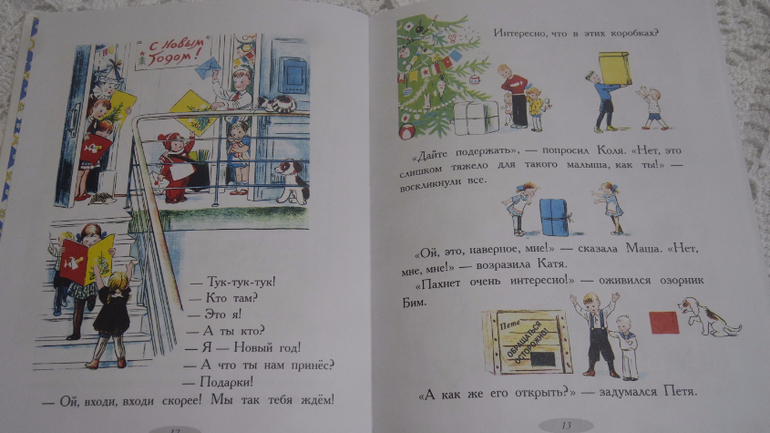 С Новым
Годом!
— Тук-тук-тук!
— Кто там?
— Это я!
— А ты кто?
— Я — Новый год!
— А что ты нам принёс?
— Подарки!
— Ой, входи, входи скорее! Мы так тебя ждём!
12
Интересно, что в этих коробках?
“Дайте подержать”, — попросил Коля. “Нет, это
слишком тяжело для такого малыша, как ты!” —
воскликнули все.
“Ой, это, наверное, мне!” — сказала Маша. “Нет,
мне, мне!” — возразила Катя.
“Пахнет очень интересно!” — оживился озорник
Бим.
Пете
ОБРАЩАТЬСЯ
ОСТОРОЖНО!
“А как же его открыть?” — задумался Петя.
13